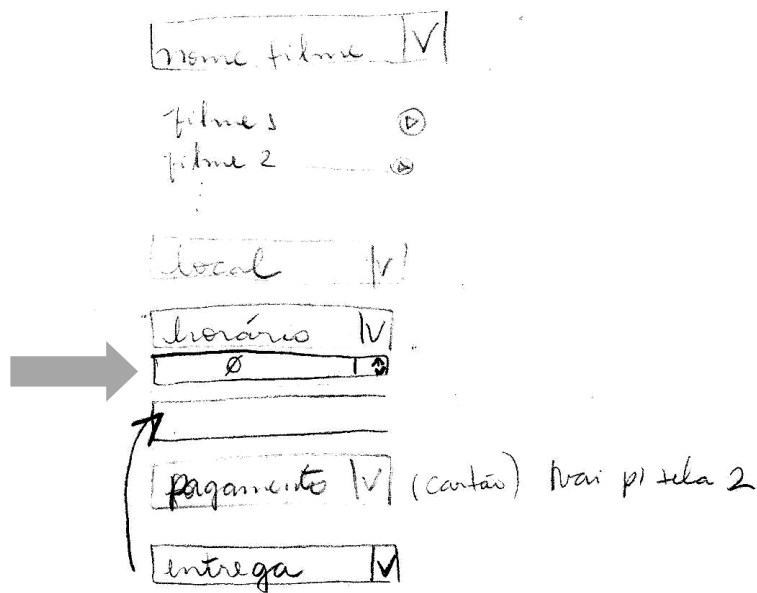 nome filme V
filme 1
filme 2
local V
horário V
Ø
pagamento V (cartão) vai p/ tela 2
entrega V